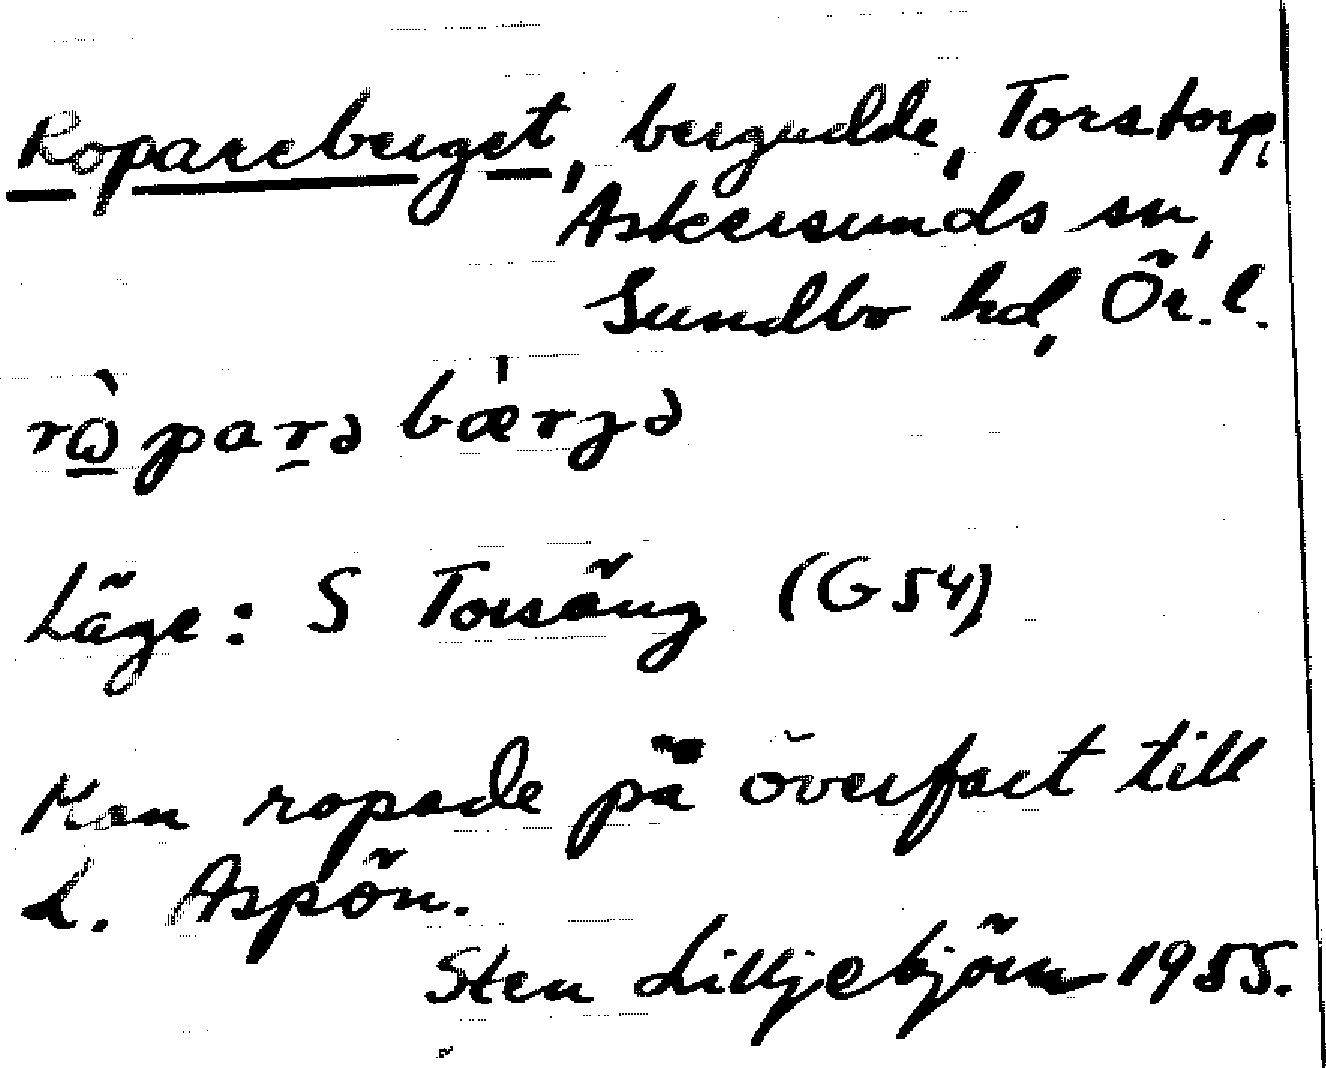 Ropareberget, bergudde, Torstorp,
Askersunds sn,
Sundbo hd, Ör. l.
rὼparə bærgə
Läge: S Torsäng (G54)
Man ropade på överfart till
L. Aspön.
Sten Lilljebjörn 1955.